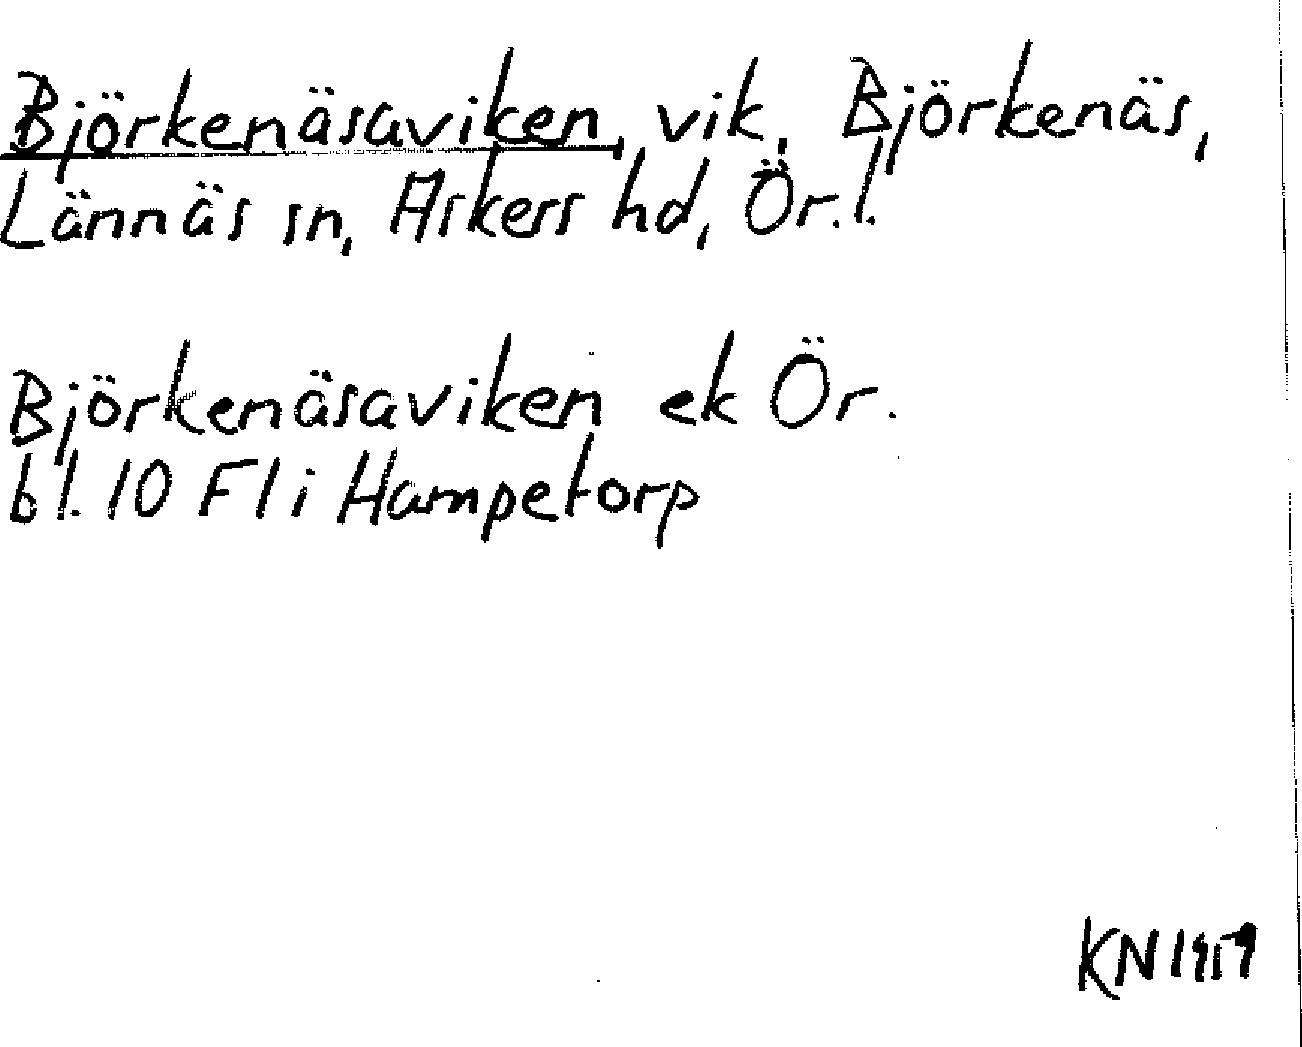 Björkenäsaviken, vik, Björkenäs,
Lännäs sn, Askers hd, Ör.l.
Björkenäsaviken ek Ör.
bl. 10 Fl i Hampetorp
KN 1959